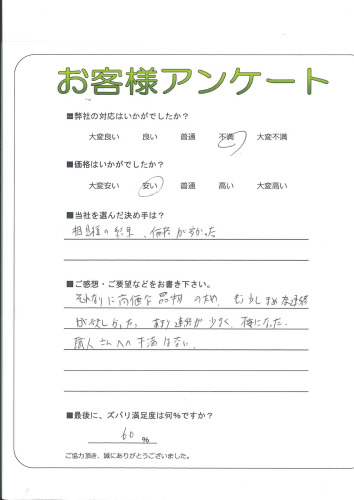 お客様アンケート
■弊社の対応はいかがでしたか?
大変良い 良い 普通 不満 大変不満
■価格はいかがでしたか?
大変安い 安い 普通 高い 大変高い
■当社を選んだ決め手は?
相見積の結果、価格が安かった
■ご感想・ご要望などをお書き下さい。
それなりに高価な品物のため、もう少し
が欲しかった。あまり連絡が少なく、になった。
職人さんへの不満はない。
■最後に、ズバリ満足度は何%ですか?
60 %
ご協力頂き、誠にありがとうございました。